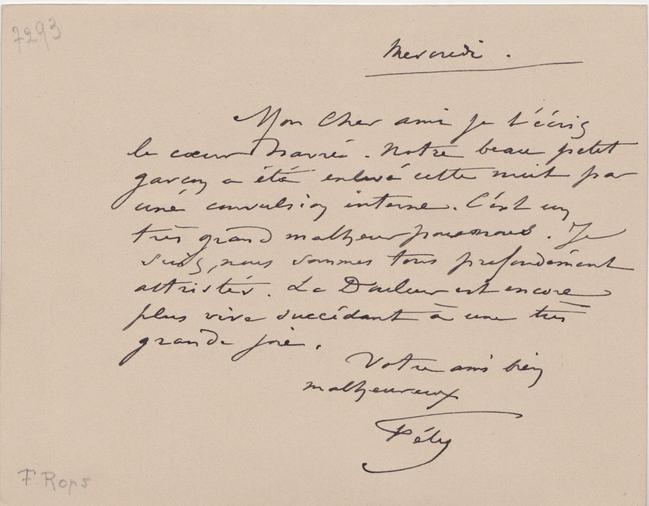 7293
Mercredi.
Mon cher ami je t'écris
le cœur navré. Notre beau petit
garçon a été enlevé cette nuit par
une convulsion interne. C'est un
très grand malheur pour nous. Je
suis, nous sommes tous profondément
attristés. La Douleur est encore
plus vive succédant à une très
grande joie.
Votre ami bien
malheureux
Fély
F. Rops